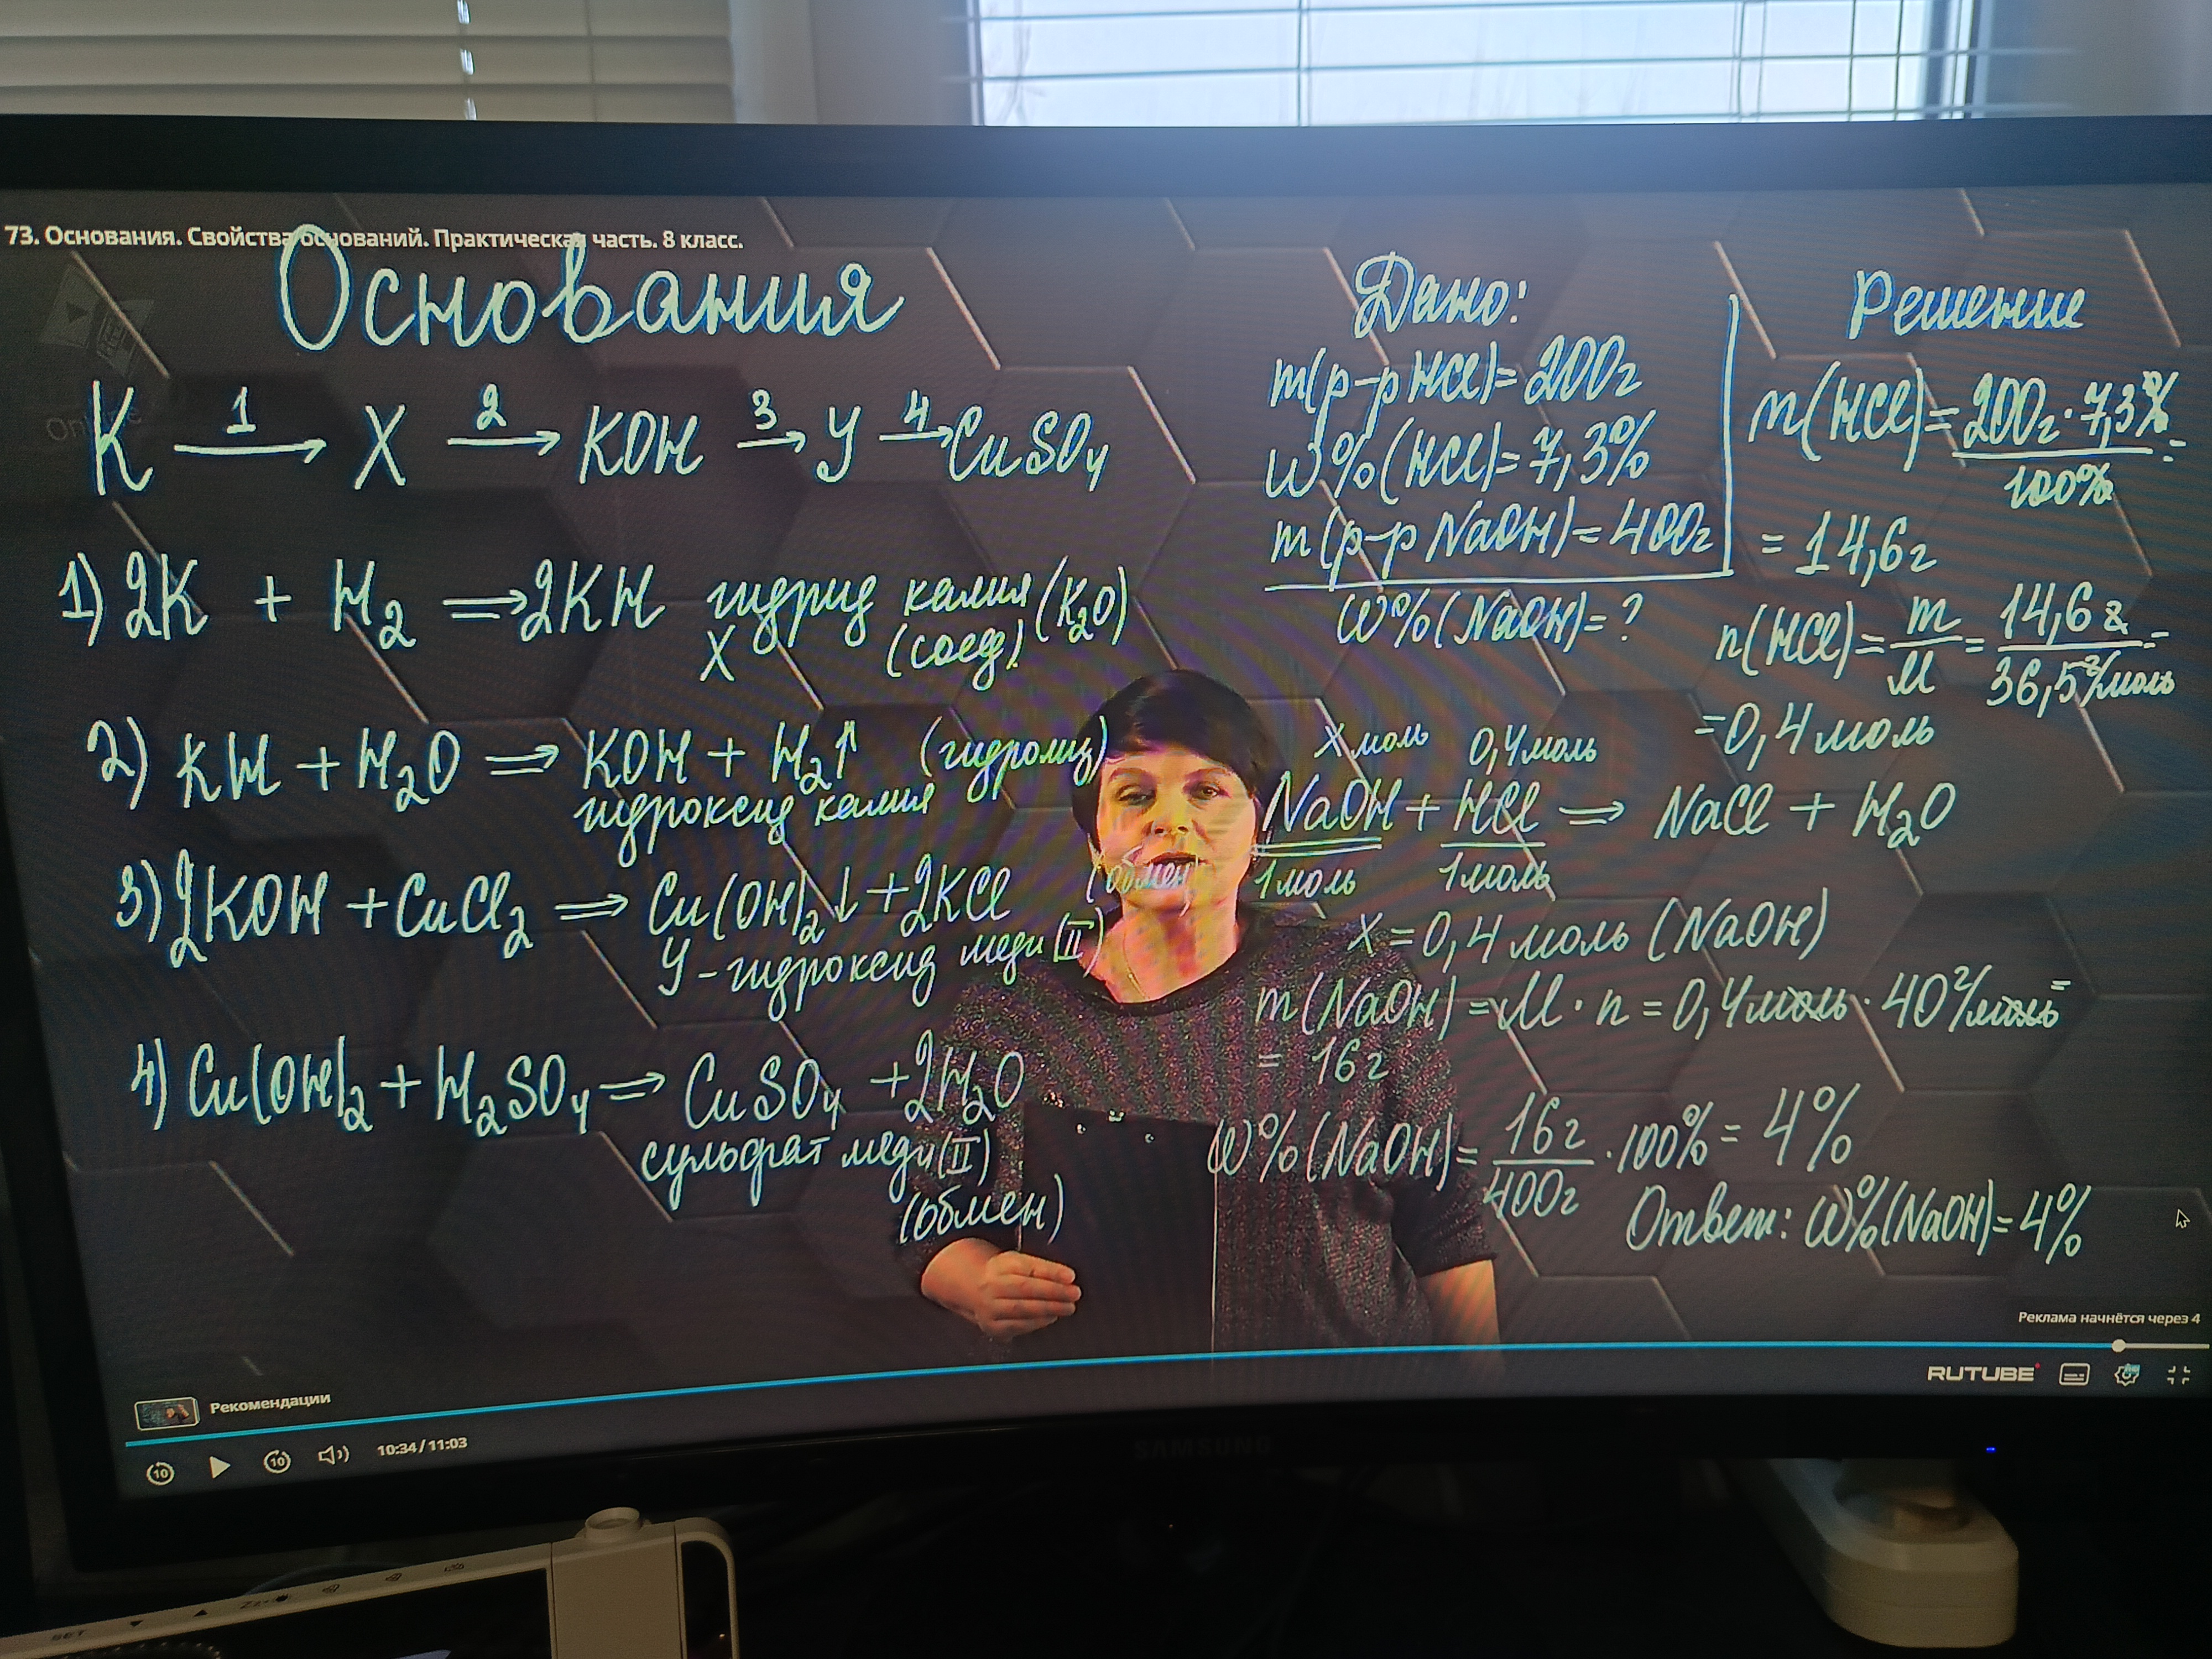 73. Основания. Свойства оснований. Практическая часть. 8 класс.
Основания
K 1→ X 2→ KOH 3→ У 4→ CuSO₄
1) 2K + H₂ ⇒ 2KH гидрид калия (K₂O)
X (соед).
2) KH + H₂O ⇒ KOH + H₂↑ (гидролиз)
гидроксид калия
3) 2KOH + CuCl₂ ⇒ Cu(OH)₂↓ + 2KCl (обмен)
У - гидроксид меди (II)
4) Cu(OH)₂ + H₂SO₄ ⇒ CuSO₄ + 2H₂O
сульфат меди (II)
(обмен)
Дано:
m(р-р HCl) = 200г
W%(HCl) = 7,3%
m(р-р NaOH) = 400г
W%(NaOH) = ?
Решение
m(HCl) = 200г · 7,3% / 100% =
= 14,6г
n(HCl) = m/M = 14,6г / 36,5г/моль =
= 0,4 моль
X моль 0,4 моль
NaOH + HCl ⇒ NaCl + H₂O
1 моль 1 моль
X = 0,4 моль (NaOH)
m(NaOH) = M · n = 0,4 моль · 40 г/моль =
= 16г
W%(NaOH) = 16г / 400г · 100% = 4%
Ответ: W%(NaOH) = 4%
Реклама начнётся через 4
RUTUBE
Рекомендации
10 10 10:34 / 11:03
SAMSUNG
SET